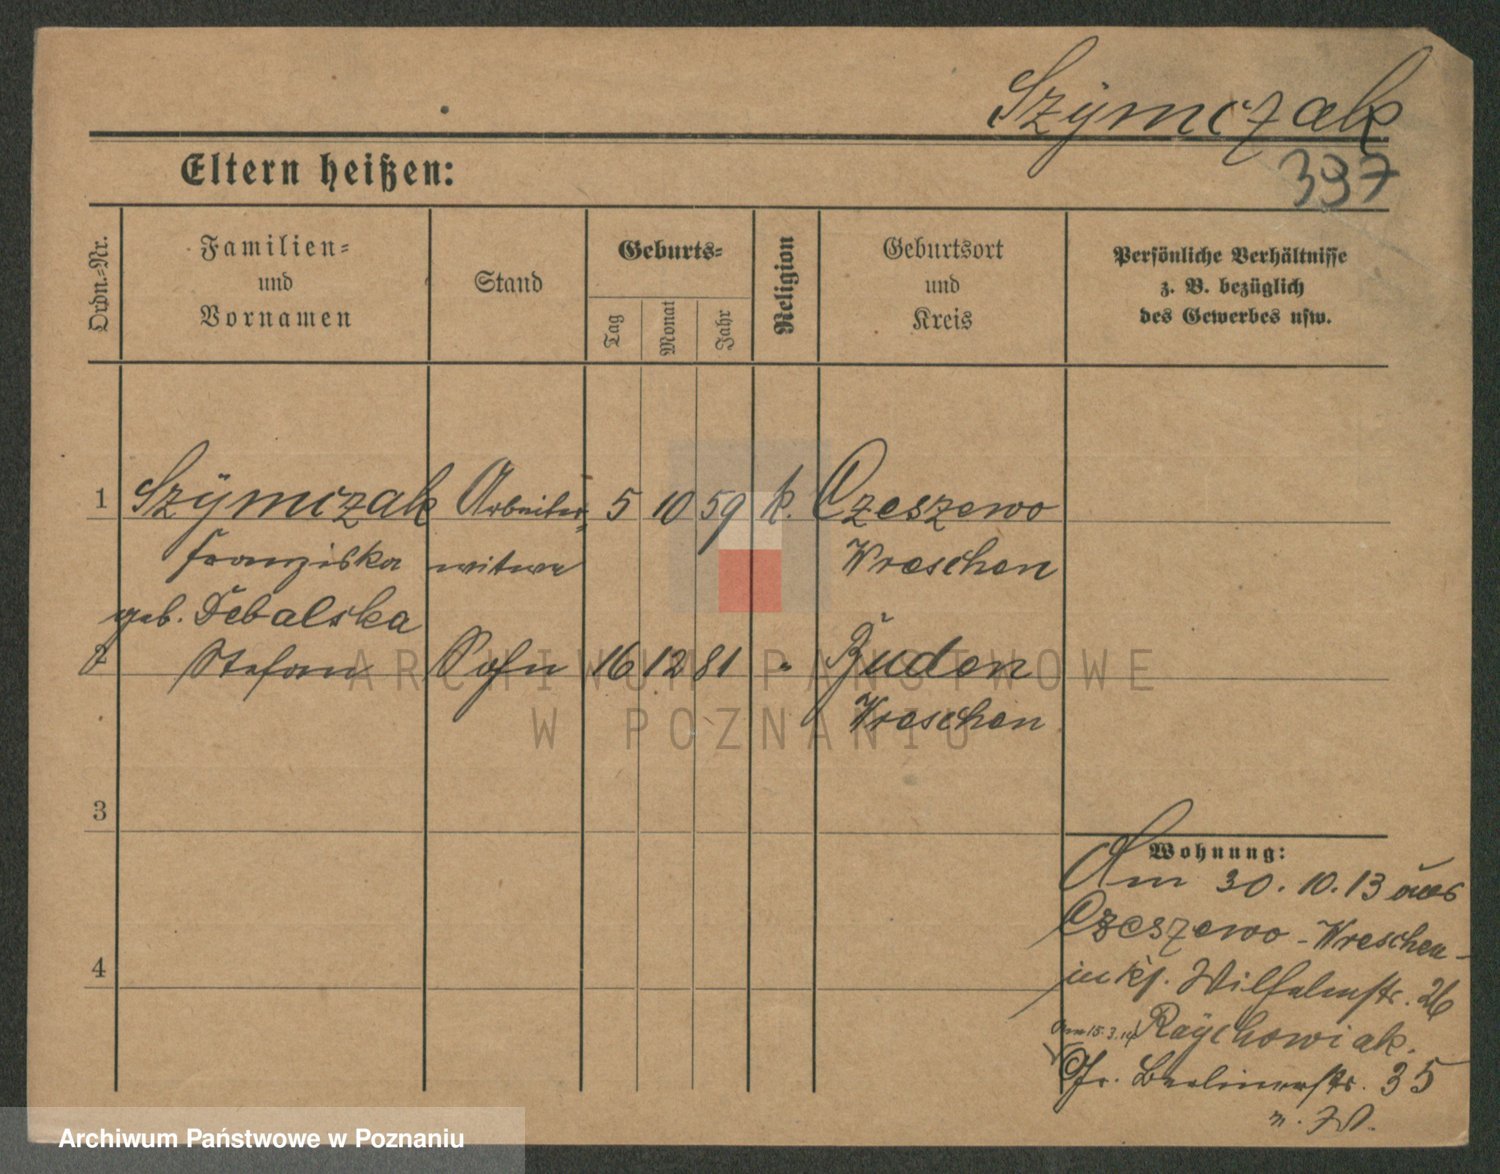 Szymczak
Eltern heißen:
397
Ordn.-Nr.
Familien-
und
Vornamen
Stand
Geburts-
Tag
Monat
Jahr
Religion
Geburtsort
und
Kreis
Persönliche Verhältnisse
z. B. bezüglich
des Gewerbes usw.
1 Szymczak Arbeiter- 5 10 59 k. Czeszewo
Franziska witwe Wreschen
geb. Debalska
2 Stefan Sohn 16 12 81 " Buden
Wreschen
3
4
Wohnung:
Am 30.10.13 aus
Czeszewo-Wreschen-
Wilhelmstr. 26
Am 15.3.14 Raychowiak.
Gr. Berlinerstr. 35
n. W.
ARCHIWUM PAŃSTWOWE
W POZNANIU
Archiwum Państwowe w Poznaniu